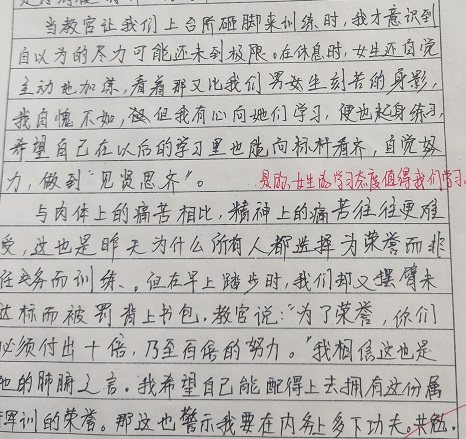 当教官让我们上台阶砸脚来训练时,我才意识到
自以为的尽力可能还未到极限。在休息时,女生还自觉
主动地加练,看着那又比我们男生刻苦的身影,
我自愧不如,但我有心向她们学习,便也起身练习,
希望自己在以后的学习里也能向标杆看齐,自觉努
力,做到“见贤思齐”。
是的,女生的学习态度值得我们学习。
与肉体上的痛苦相比,精神上的痛苦往往更难
受,这也是昨天为什么所有人都选择为荣誉而非
任务而训练、。但在早上踏步时,我们却又摆臂未
达标而被罚背上书包。教官说:“为了荣誉,你们
必须付出十倍,乃至百倍的努力。”我相信这也是
他的肺腑之言。我希望自己能配得上去拥有这份属
军训的荣誉。那这也警示我要在内务上多下功夫。共勉.